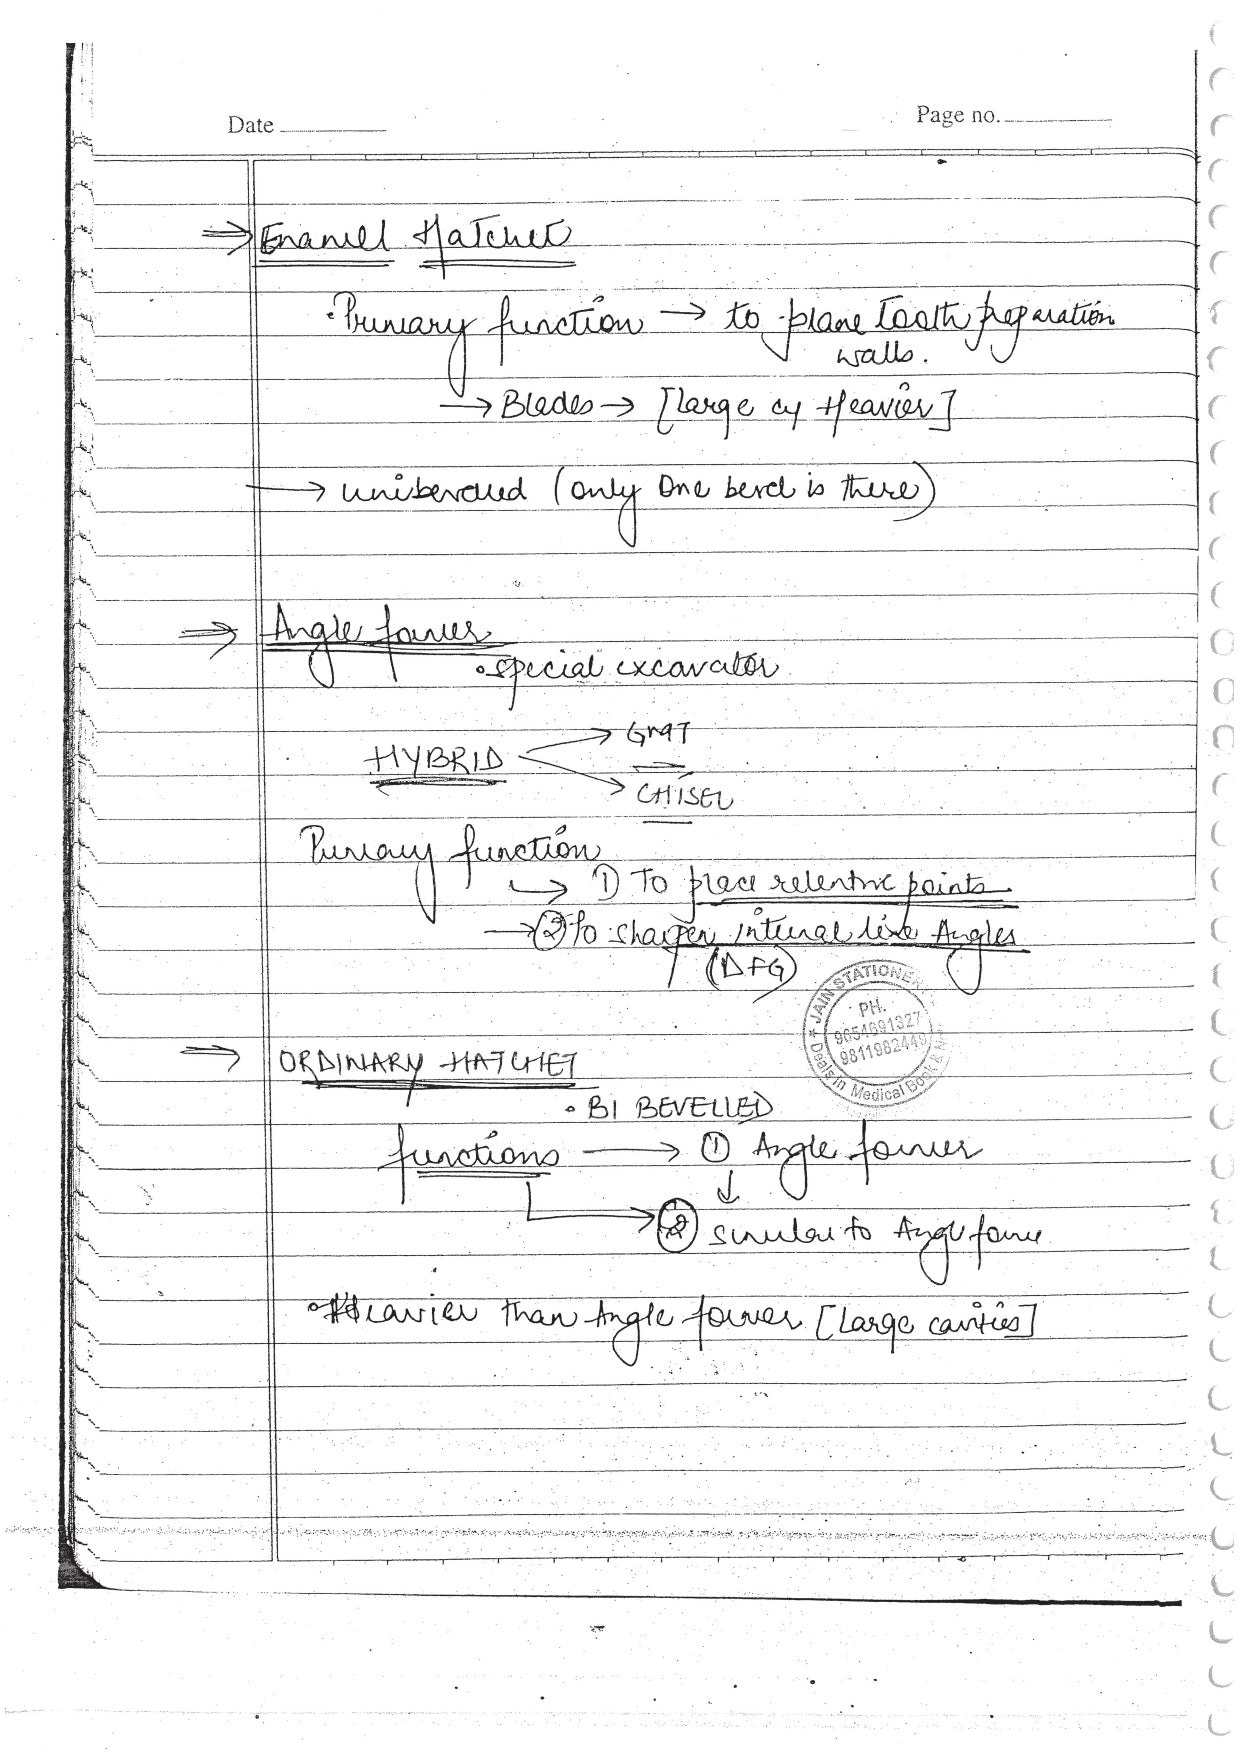 Date
Page no.
⇒ Enamel Hatchet
• Primary function → to plane Tooth preparation
walls.
→ Blades → [large Heavier]
→ unibevelled (only One bevel is there)
⇒ Angle former
• special excavator
HYBRID
→ CHISEL
Primary function
→ 1) To place retentive points
→ ② To sharpen internal line Angles
(DFG)
JAIN STATIONER
PH.
9654691327
9811982449
Deals in Medical Book &
⇒ ORDINARY HATCHET
• BI BEVELLED
functions → ① Angle former
↓
→ ② similar to Angle former
• Heavier than Angle former [Large cavities]